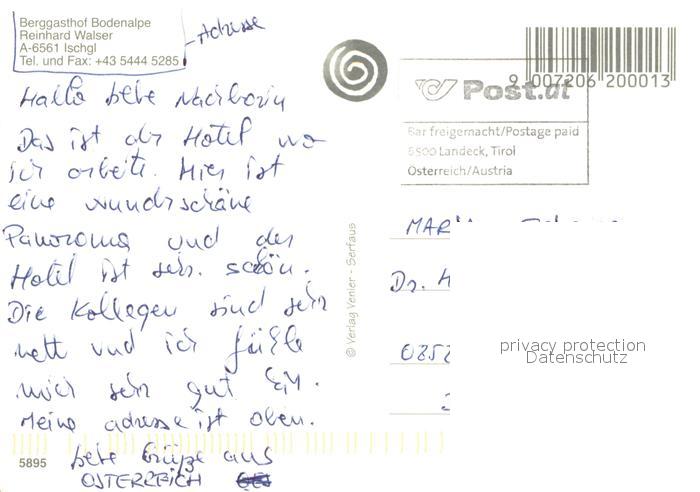 Berggasthof Bodenalpe
Reinhard Walser
A-6561 Ischgl
Tel. und Fax: +43 5444 5285
Adresse
Hallo liebe Nachbarin
Das ist der Hotel wo
ich arbeite. Hier ist
eine wunderschöne
Panorama und der
Hotel ist sehr. schön.
Die Kollegen sind sehr
nett und ich fühle
mich sehr gut hier.
Meine adresse ist oben.
liebe Grüße aus
ÖSTERREICH
5895
© Verlag Venier - Serfaus
9 007206 200013
Post.at
Bar freigemacht/Postage paid
6500 Landeck, Tirol
Österreich/Austria
MAR
Dr. H
privacy protection
Datenschutz